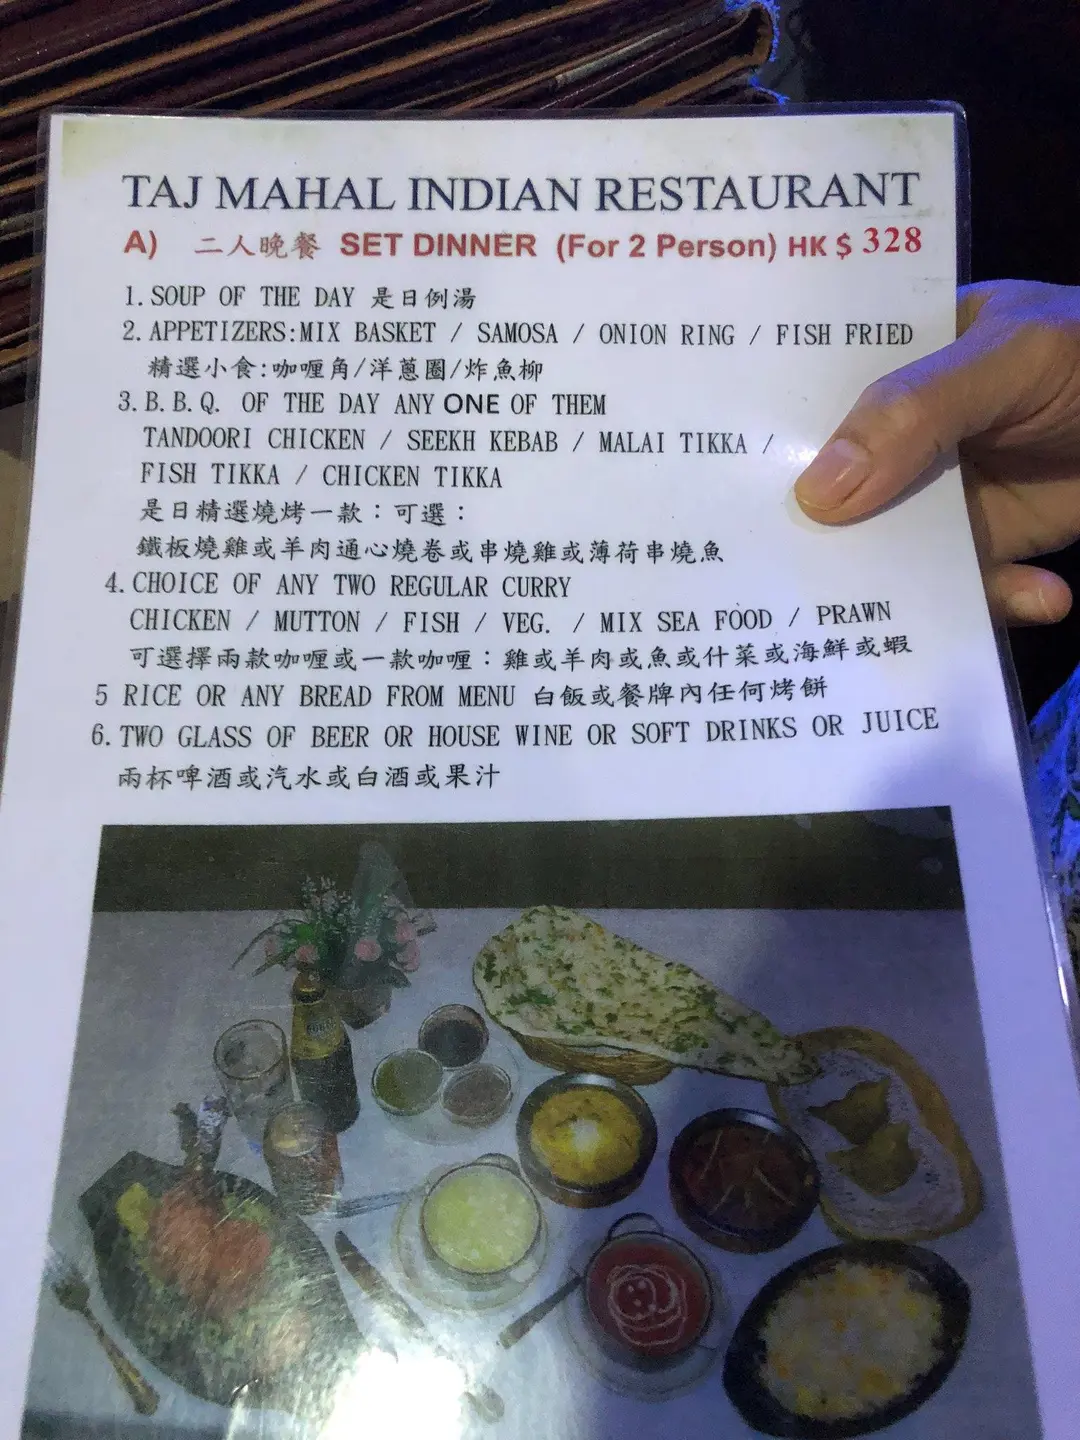 TAJ MAHAL INDIAN RESTAURANT
A) 二人晚餐 SET DINNER (For 2 Person) HK $ 328
1. SOUP OF THE DAY 是日例湯
2. APPETIZERS:MIX BASKET / SAMOSA / ONION RING / FISH FRIED
精選小食:咖喱角/洋蔥圈/炸魚柳
3. B.B.Q. OF THE DAY ANY ONE OF THEM
TANDOORI CHICKEN / SEEKH KEBAB / MALAI TIKKA /
FISH TIKKA / CHICKEN TIKKA
是日精選燒烤一款：可選：
鐵板燒雞或羊肉通心燒卷或串燒雞或薄荷串燒魚
4. CHOICE OF ANY TWO REGULAR CURRY
CHICKEN / MUTTON / FISH / VEG. / MIX SEA FOOD / PRAWN
可選擇兩款咖喱或一款咖喱：雞或羊肉或魚或什菜或海鮮或蝦
5 RICE OR ANY BREAD FROM MENU 白飯或餐牌內任何烤餅
6. TWO GLASS OF BEER OR HOUSE WINE OR SOFT DRINKS OR JUICE
兩杯啤酒或汽水或白酒或果汁